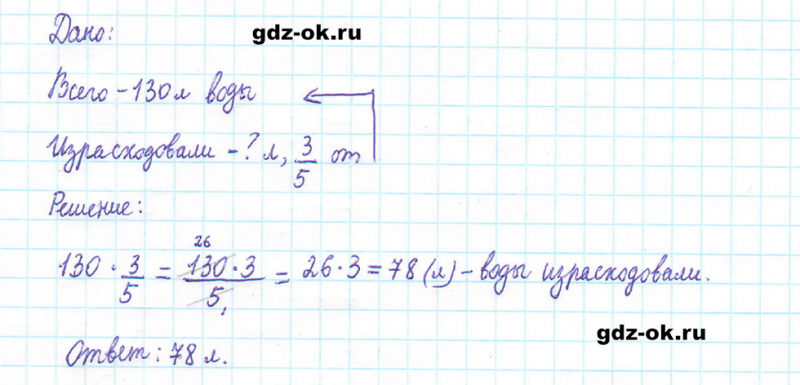 Дано:
gdz-ok.ru
Всего - 130 л воды
Израсходовали - ? л, 3/5 от
Решение:
130 · 3/5 = 130 · 3 / 5 = 26 · 3 = 78 (л) - воды израсходовали.
26
1
gdz-ok.ru
Ответ: 78 л.